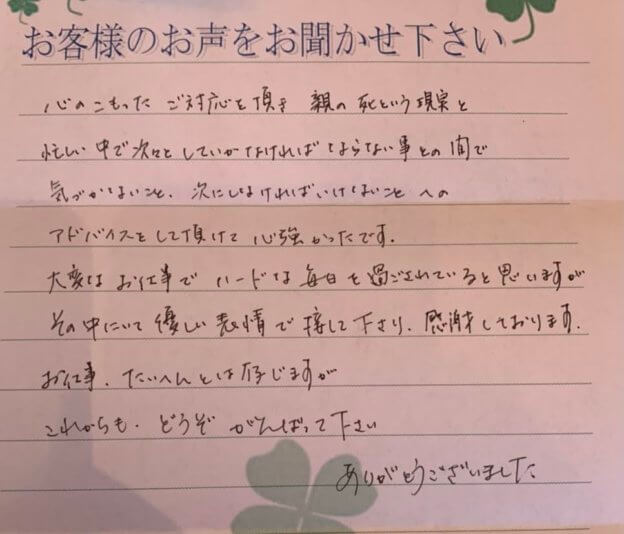 お客様のお声をお聞かせ下さい
心のこもった ご対応を頂き 親の死という現実と
忙しい中で次々としていかなければならない事との間で
気づかないこと、次にしなければいけないことへの
アドバイスをして頂けて心強かったです。
大変な お仕事で ハードな毎日を過ごされていると思いますが
その中にいて優しい表情で接して下さり、感謝しております。
お仕事、たいへんとは存じますが
これからも、どうぞ がんばって下さい
ありがとうございました